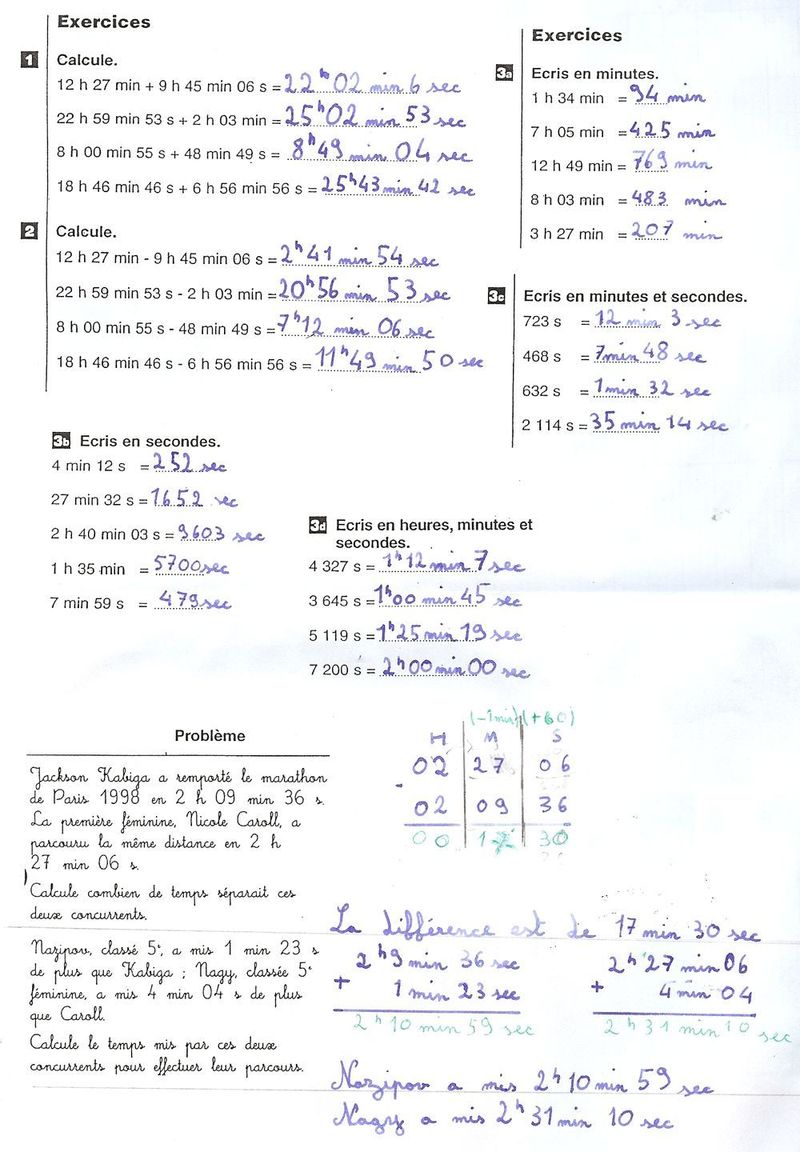 Exercices
1 Calcule.
12 h 27 min + 9 h 45 min 06 s = 22 h 02 min 6 sec
22 h 59 min 53 s + 2 h 03 min = 25 h 02 min 53 sec
8 h 00 min 55 s + 48 min 49 s = 8 h 49 min 04 sec
18 h 46 min 46 s + 6 h 56 min 56 s = 25 h 43 min 42 sec
2 Calcule.
12 h 27 min - 9 h 45 min 06 s = 2 h 41 min 54 sec
22 h 59 min 53 s - 2 h 03 min = 20 h 56 min 53 sec
8 h 00 min 55 s - 48 min 49 s = 7 h 12 min 06 sec
18 h 46 min 46 s - 6 h 56 min 56 s = 11 h 49 min 50 sec
Exercices
3a Ecris en minutes.
1 h 34 min = 94 min
7 h 05 min = 425 min
12 h 49 min = 769 min
8 h 03 min = 483 min
3 h 27 min = 207 min
3c Ecris en minutes et secondes.
723 s = 12 min 3 sec
468 s = 7 min 48 sec
632 s = 1 min 32 sec
2 114 s = 35 min 14 sec
3b Ecris en secondes.
4 min 12 s = 252 sec
27 min 32 s = 1652 sec
2 h 40 min 03 s = 9603 sec
1 h 35 min = 5700 sec
7 min 59 s = 479 sec
3d Ecris en heures, minutes et
secondes.
4 327 s = 1 h 12 min 7 sec
3 645 s = 1 h 00 min 45 sec
5 119 s = 1 h 25 min 19 sec
7 200 s = 2 h 00 min 00 sec
Problème
Jackson Kabiga a remporté le marathon
de Paris 1998 en 2 h 09 min 36 s.
La première féminine, Nicole Caroll, a
parcouru la même distance en 2 h
27 min 06 s.
Calcule combien de temps séparait ces
deux concurrents.
(-1 min) (+60)
H M S
02 27 06
- 02 09 36
00 17 30
La différence est de 17 min 30 sec
Nazipov, classé 5e, a mis 1 min 23 s
de plus que Kabiga ; Nagy, classée 5e
féminine, a mis 4 min 04 s de plus
que Caroll.
Calcule le temps mis par ces deux
concurrents pour effectuer leur parcours.
2 h 9 min 36 sec
+ 1 min 23 sec
2 h 10 min 59 sec
2 h 27 min 06
+ 4 min 04
2 h 31 min 10 sec
Nazipov a mis 2 h 10 min 59 sec
Nagy a mis 2 h 31 min 10 sec